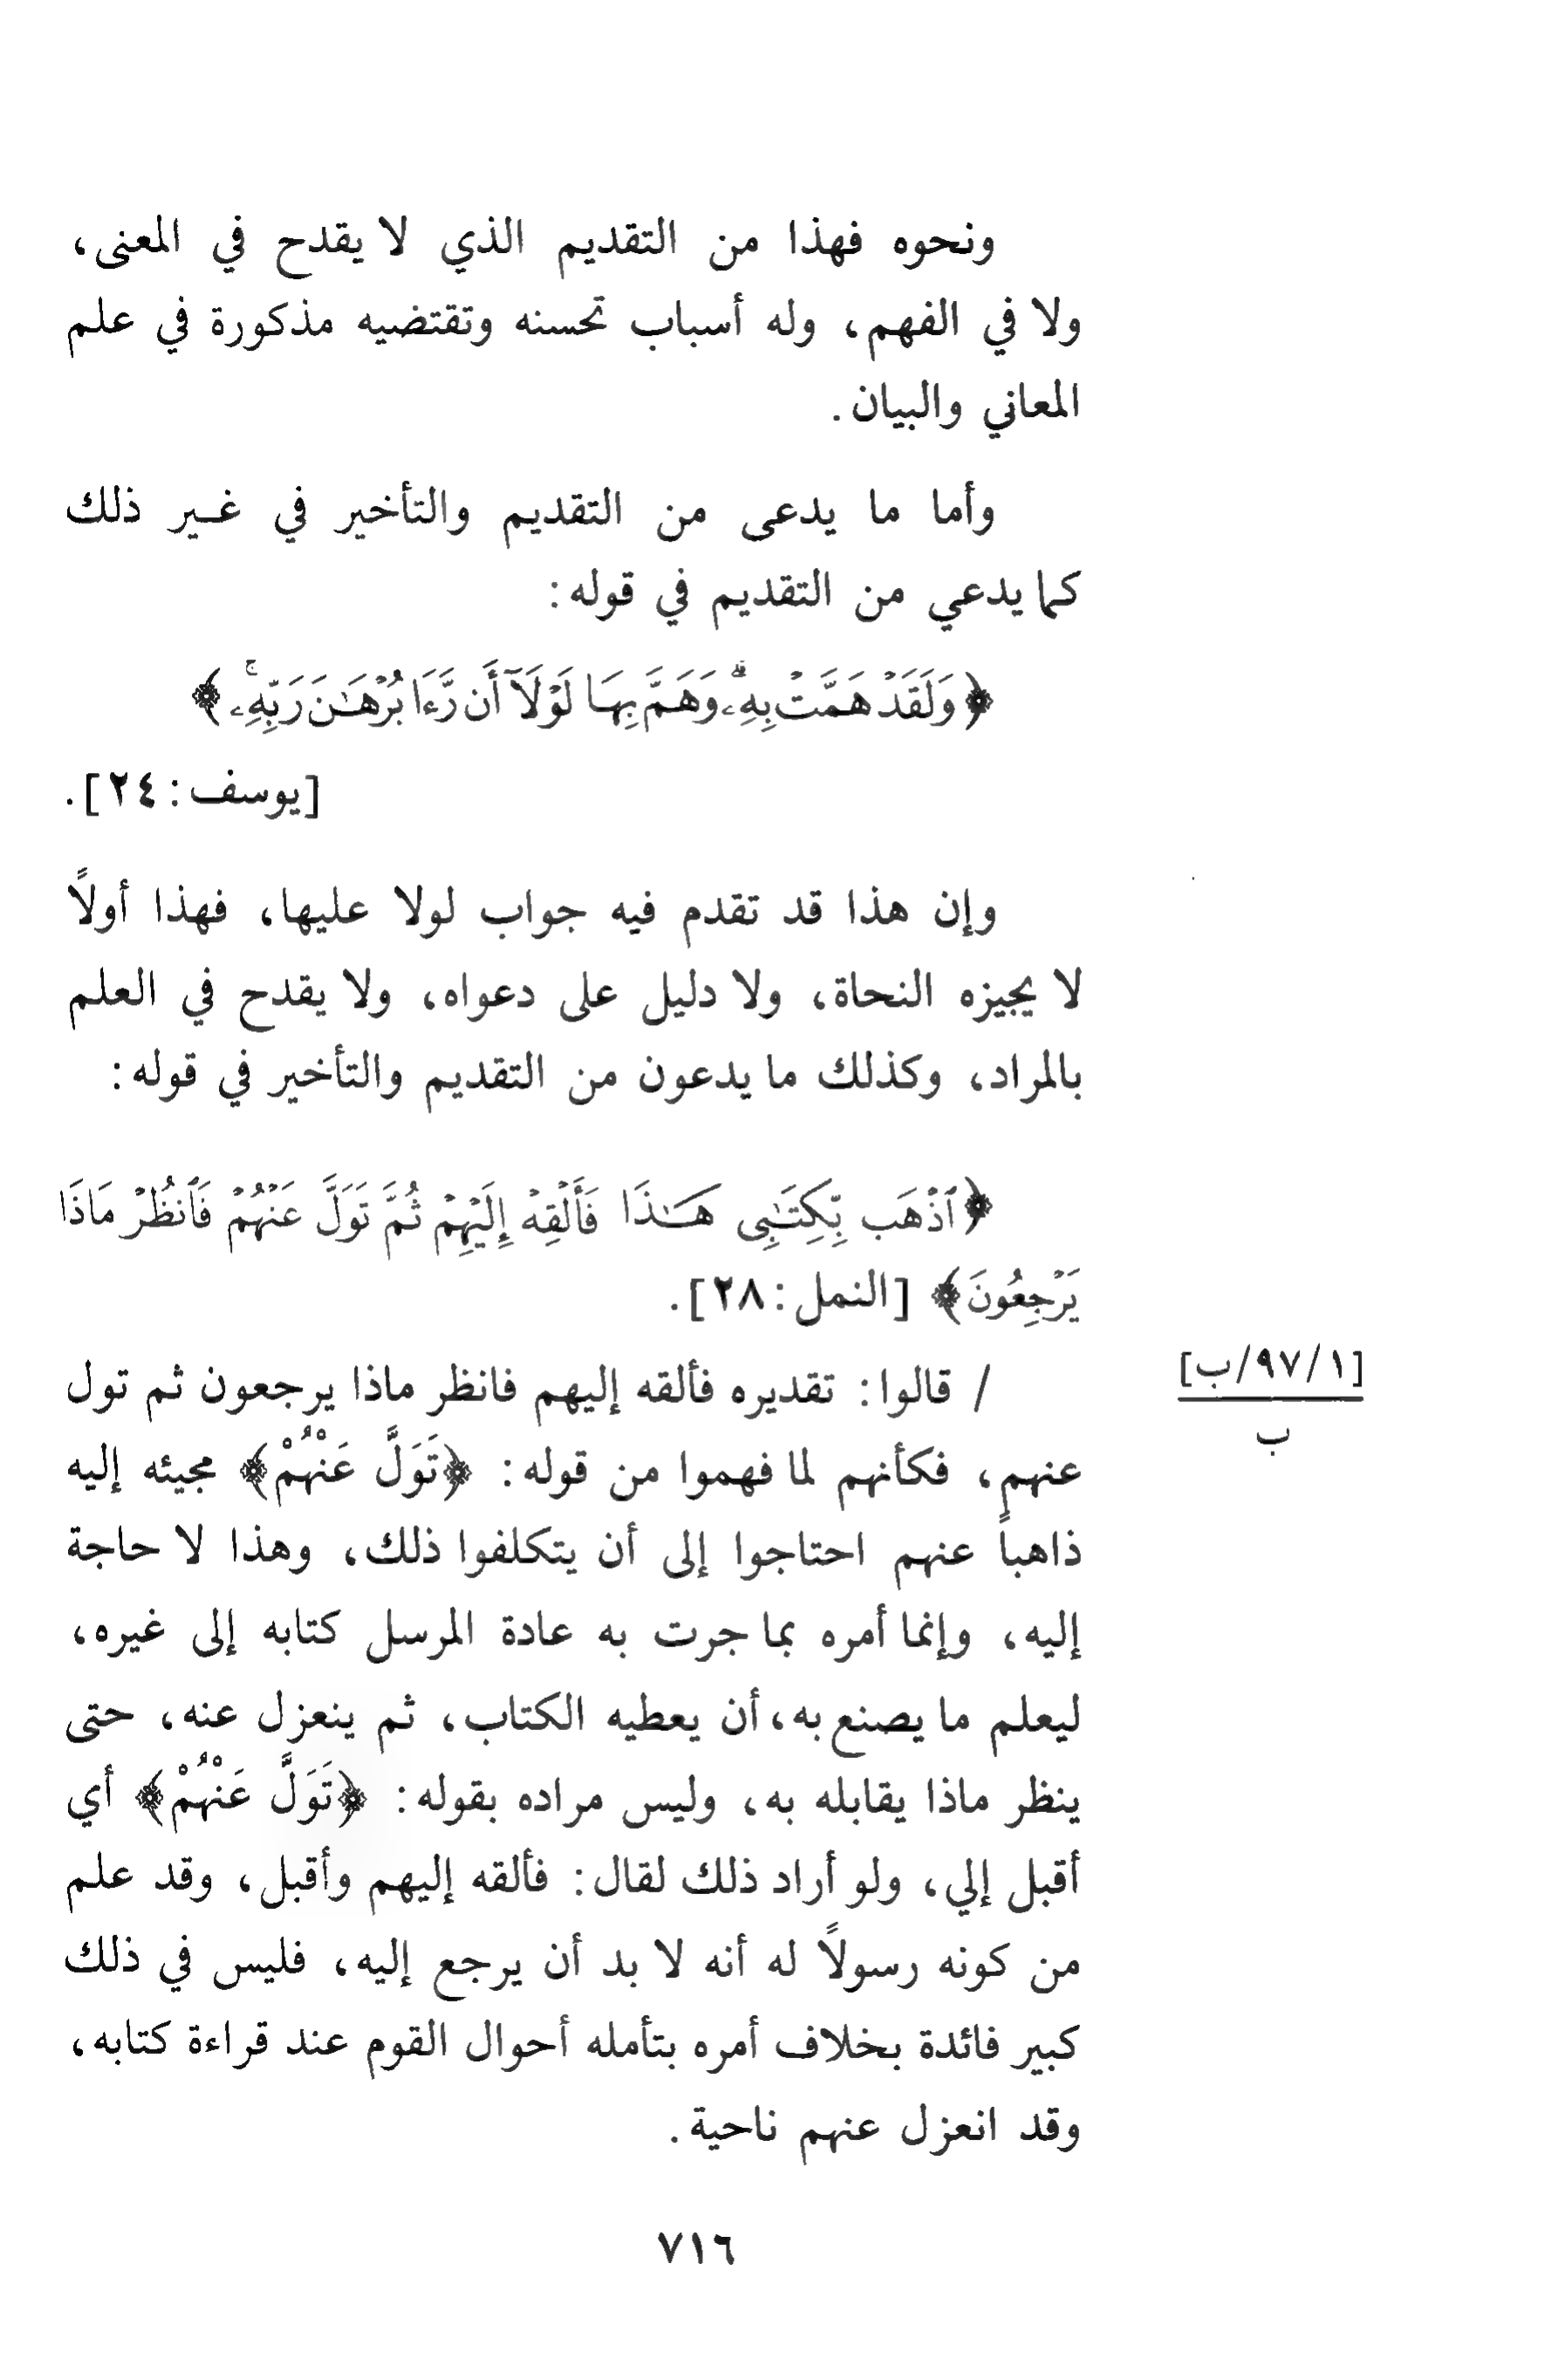 ونحوه فهذا من التقديم الذي لا يقدح في المعنى،
ولا في الفهم، وله أسباب تحسنه وتقتضيه مذكورة في علم
المعاني والبيان.
وأما ما يدعى من التقديم والتأخير في غير ذلك
كما يدعي من التقديم في قوله:
﴿وَلَقَدْ هَمَّتْ بِهِۦ ۖ وَهَمَّ بِهَا لَوْلَآ أَن رَّءَا بُرْهَـٰنَ رَبِّهِۦ ۚ﴾
[يوسف: ٢٤].
وإن هذا قد تقدم فيه جواب لولا عليها، فهذا أولاً
لا يجيزه النحاة، ولا دليل على دعواه، ولا يقدح في العلم
بالمراد، وكذلك ما يدعون من التقديم والتأخير في قوله:
﴿ٱذْهَب بِّكِتَـٰبِى هَـٰذَا فَأَلْقِهْ إِلَيْهِمْ ثُمَّ تَوَلَّ عَنْهُمْ فَٱنظُرْ مَاذَا
يَرْجِعُونَ﴾ [النمل: ٢٨].
/ قالوا: تقديره فألقه إليهم فانظر ماذا يرجعون ثم تول
[١/٩٧/ب]
ب
عنهم، فكأنهم لما فهموا من قوله: ﴿تَوَلَّ عَنْهُمْ﴾ مجيئه إليه
ذاهباً عنهم احتاجوا إلى أن يتكلفوا ذلك، وهذا لا حاجة
إليه، وإنما أمره بما جرت به عادة المرسل كتابه إلى غيره،
ليعلم ما يصنع به، أن يعطيه الكتاب، ثم ينعزل عنه، حتى
ينظر ماذا يقابله به، وليس مراده بقوله: ﴿تَوَلَّ عَنْهُمْ﴾ أي
أقبل إلي، ولو أراد ذلك لقال: فألقه إليهم وأقبل، وقد علم
من كونه رسولاً له أنه لا بد أن يرجع إليه، فليس في ذلك
كبير فائدة بخلاف أمره بتأمله أحوال القوم عند قراءة كتابه،
وقد انعزل عنهم ناحية.
٧١٦